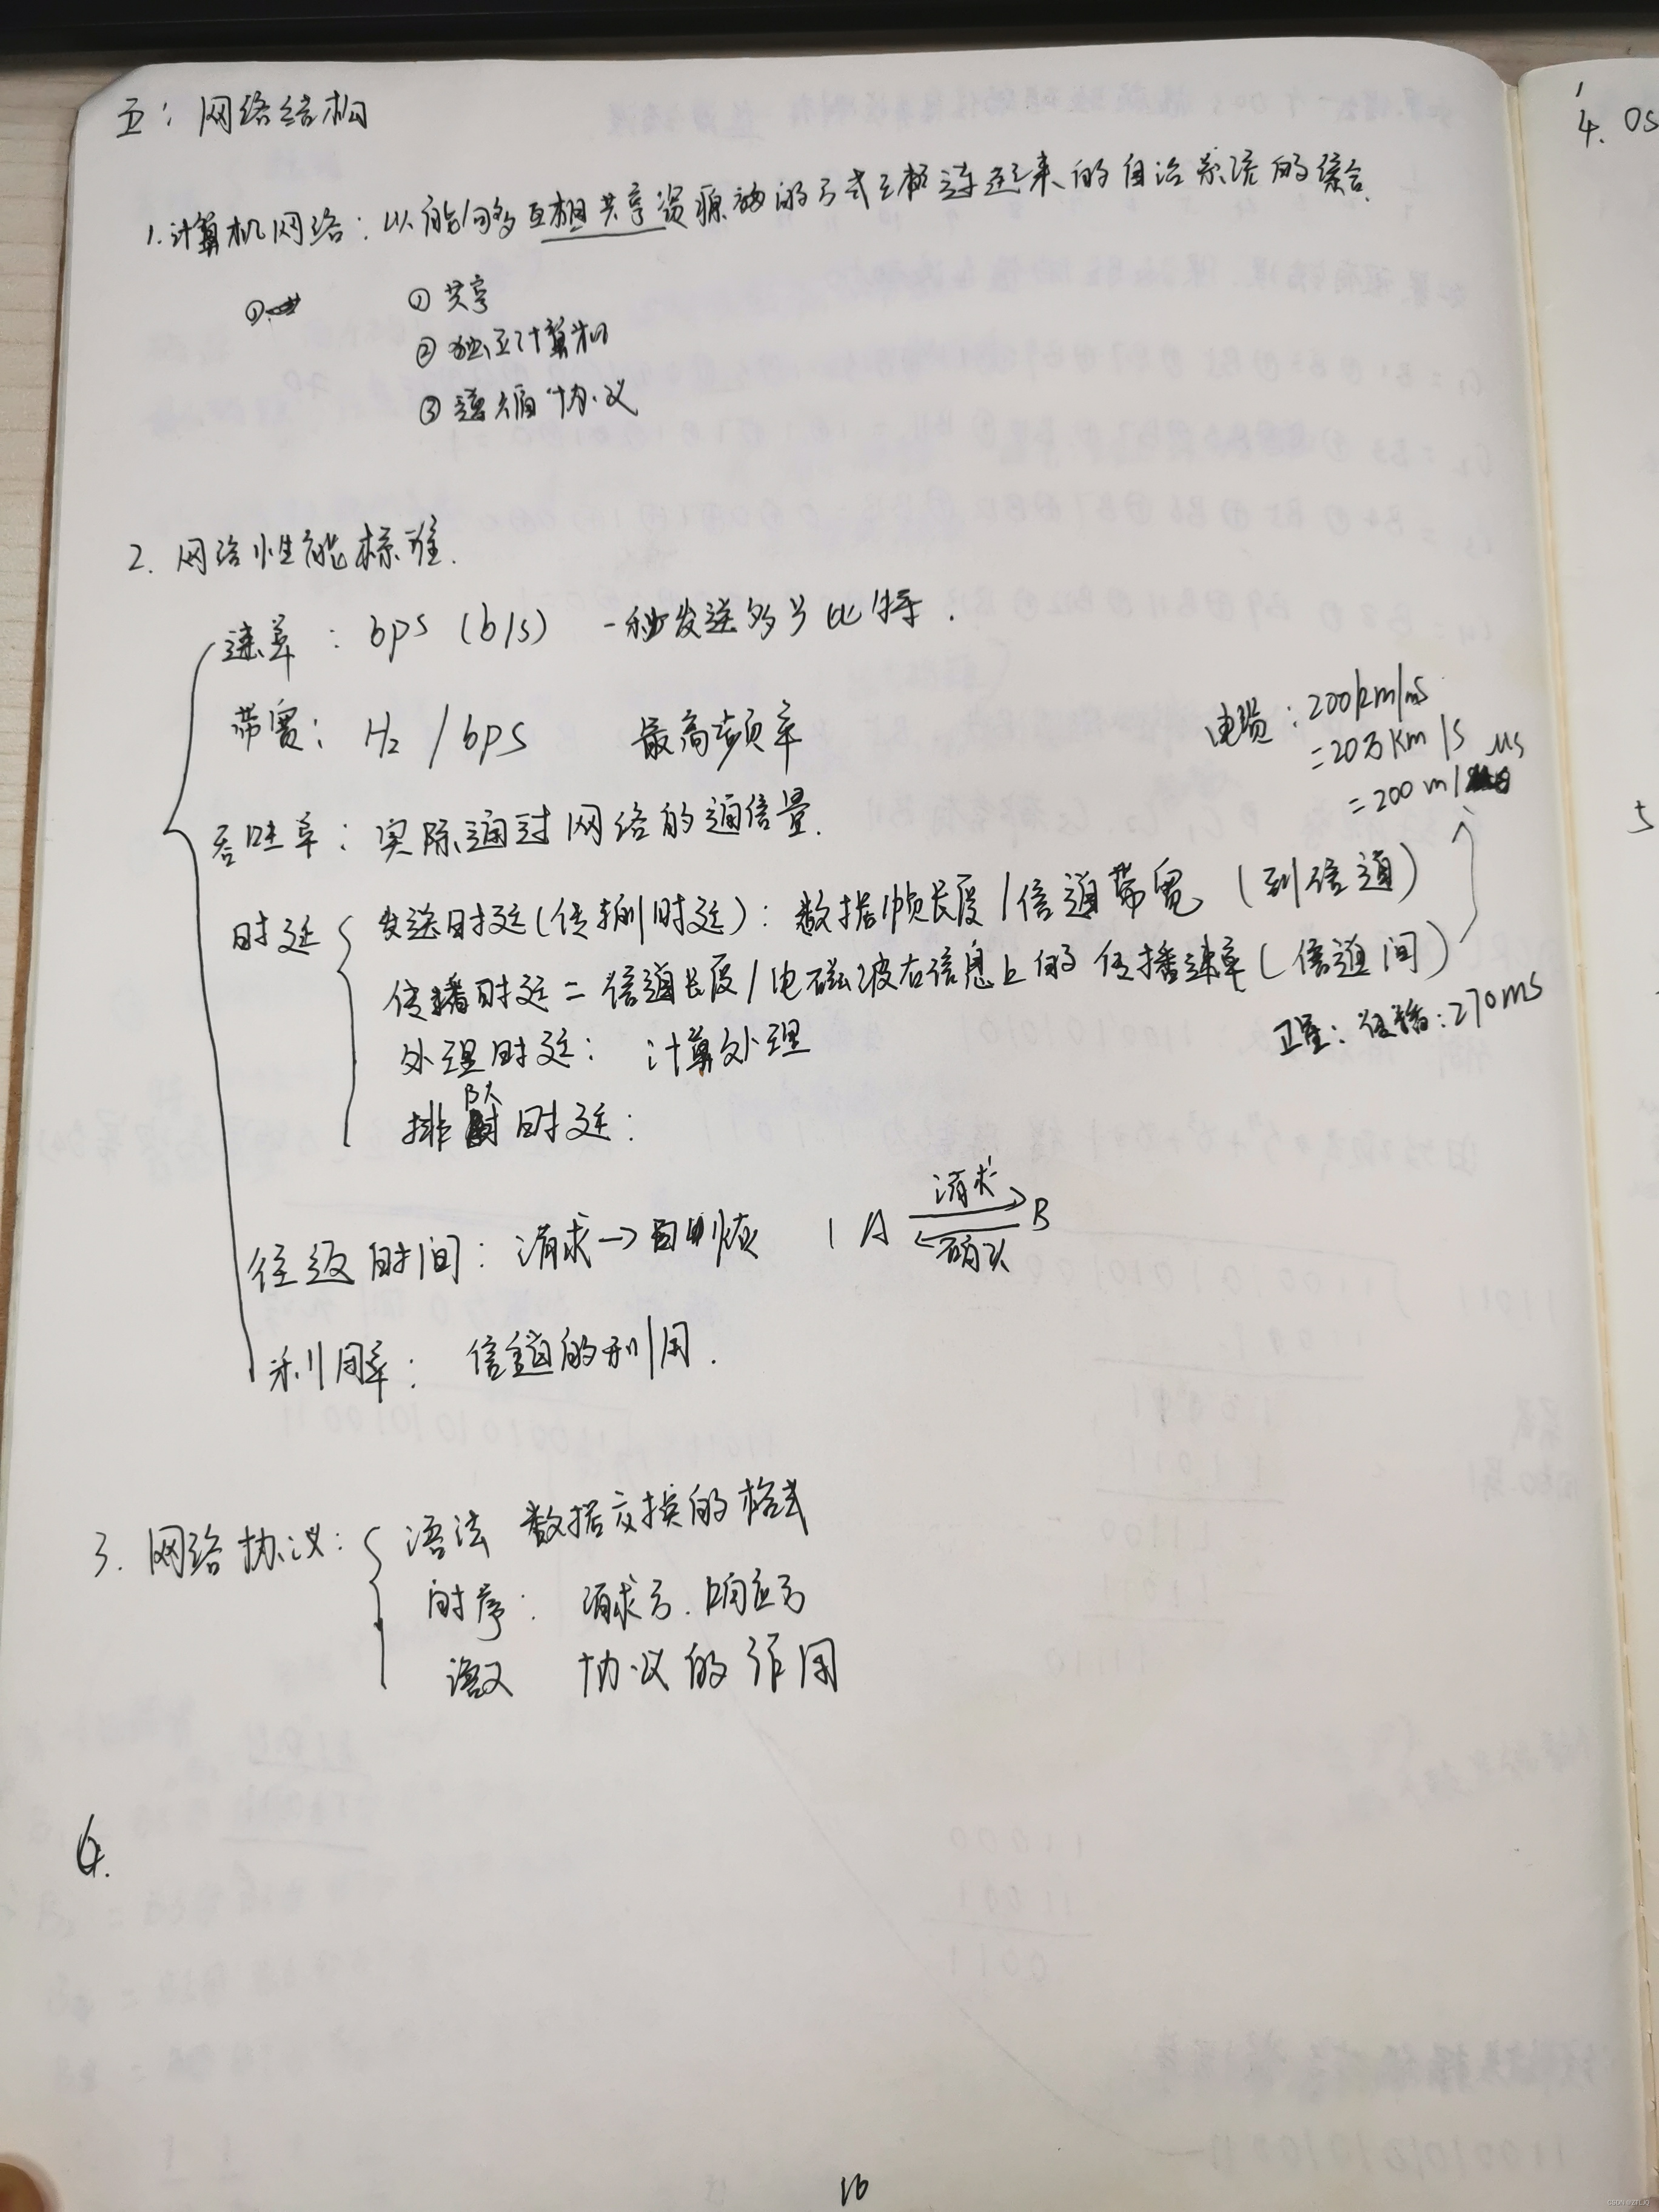 五：网络结构
1.计算机网络：以能够互相共享资源的方式互联连起来的自治系统的综合.
①
① 共享
② 独立计算机
③ 遵循协议
2. 网络性能标准.
速率：bps (b/s) 一秒发送多少比特.
带宽：Hz / bps 最高频率
电缆：200km/ms
=20万km/s
=200m/μs
吞吐率：实际通过网络的通信量.
时延
发送时延(传输时延)：数据帧长度/信道带宽 (到信道)
传播时延=信道长度/电磁波在信息上的传播速率(信道间)
卫星：传播：270ms
处理时延：计算处理
排队时延：
往返时间：请求→ A 请求 B
确认
利用率：信道的利用.
3. 网络协议：
语法 数据交换的格式
时序：请求方.响应方
语义 协议的作用
4. OS
5
16